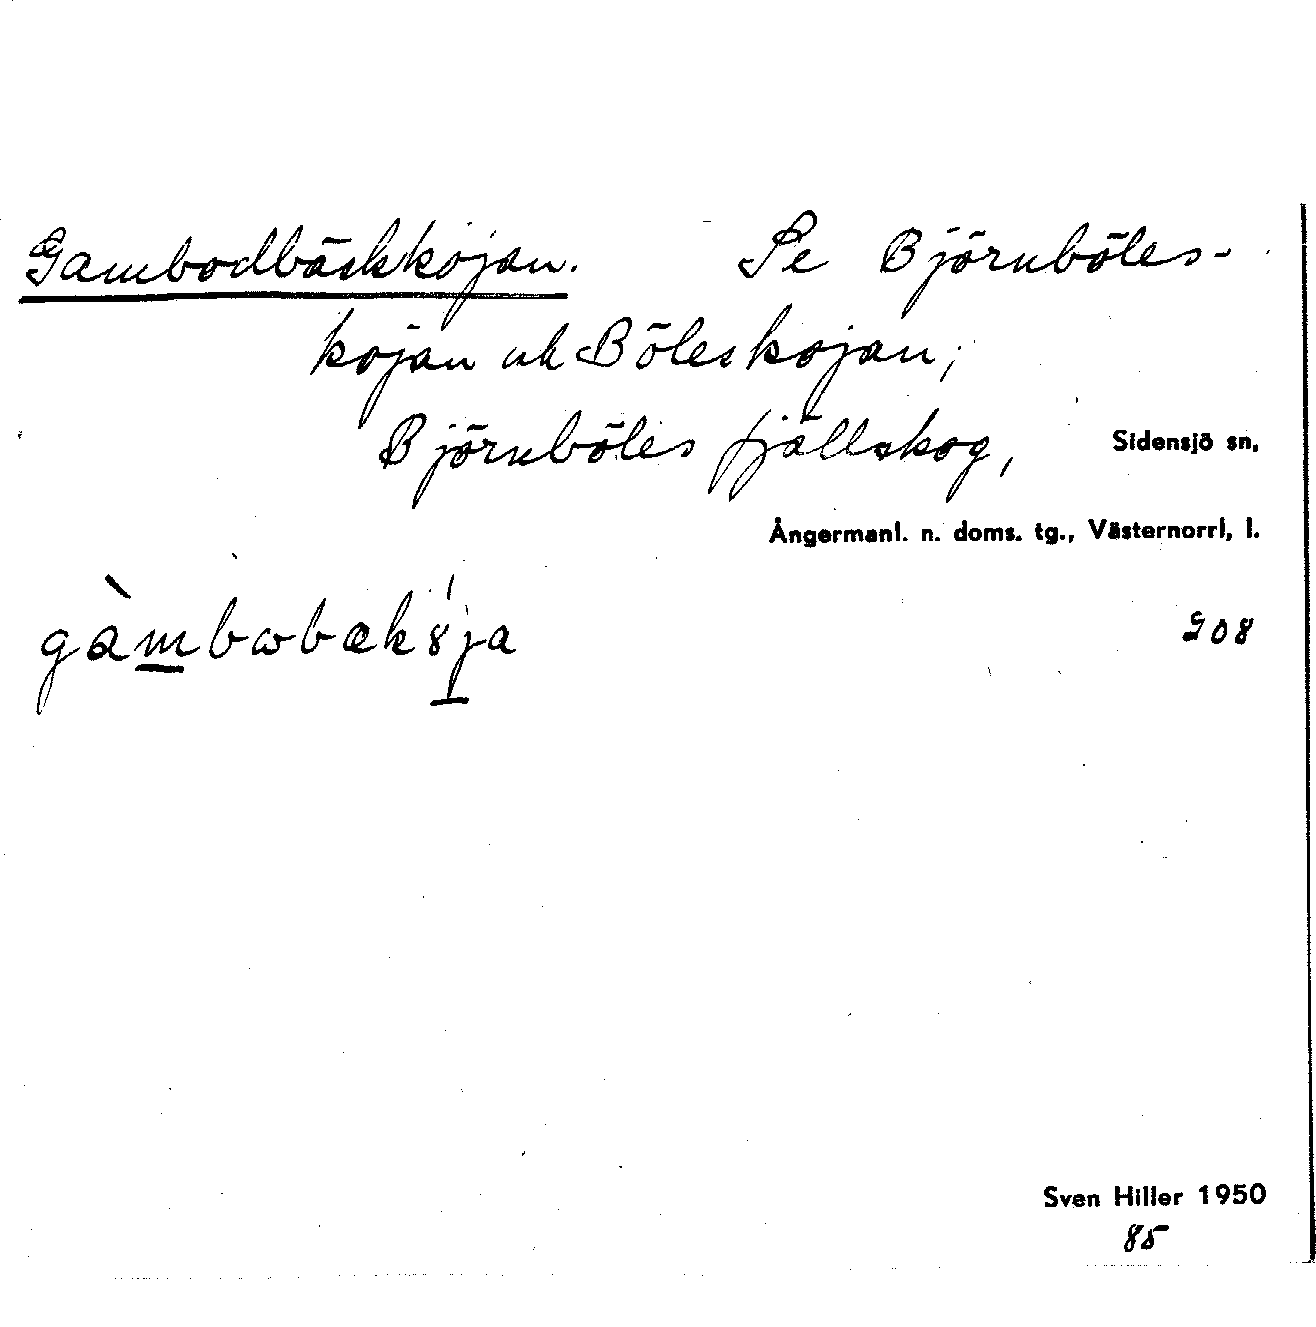 Gambodbäckkojan. Se Björnböles-
kojan och Böleskojan,
Björnböles fjällskog, Sidensjö sn,
Ångermanl. n. doms. tg., Västernorrl, l.
908
Sven Hiller 1950
85